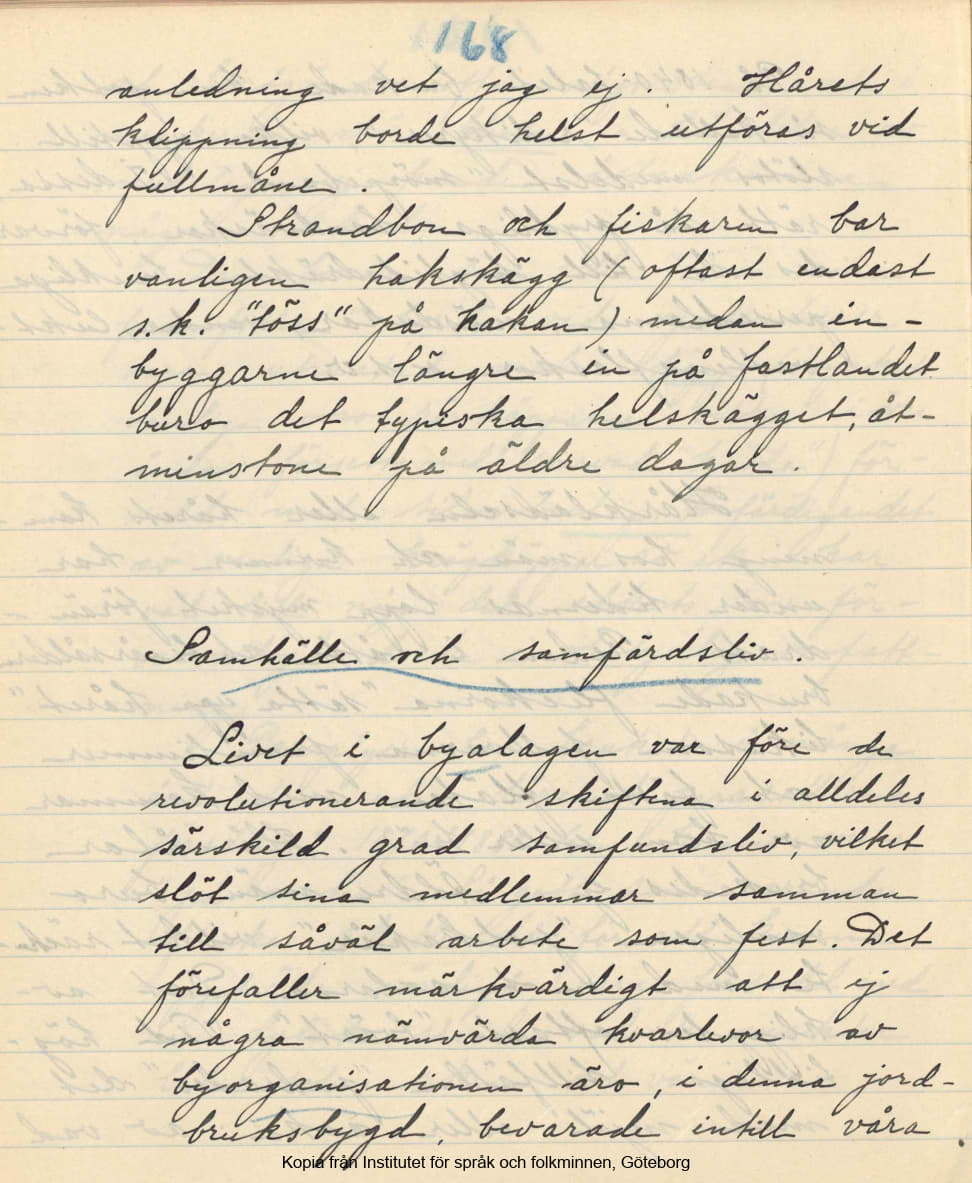 168
anledning vet jag ej. Hårets
klippning borde helst utföras vid
fullmåne.
Strandbon och fiskaren bar
vanligen hakskägg (oftast endast
s.k. "töss" på hakan) medan in-
byggarne längre in på fastlandet
buro det typiska helskägget, åt-
minstone på äldre dagar.
Samhälle och samfärdsliv.
Livet i byalagen var före de
revolutionerande skiftena i alldeles
särskild grad samfundsliv, vilket
slöt sina medlemmar samman
till såväl arbete som fest. Det
förefaller märkvärdigt att ej
några nämvärda kvarlevor av
byorganisationen äro, i denna jord-
bruksbygd, bevarade intill våra
Kopia från Institutet för språk och folkminnen, Göteborg